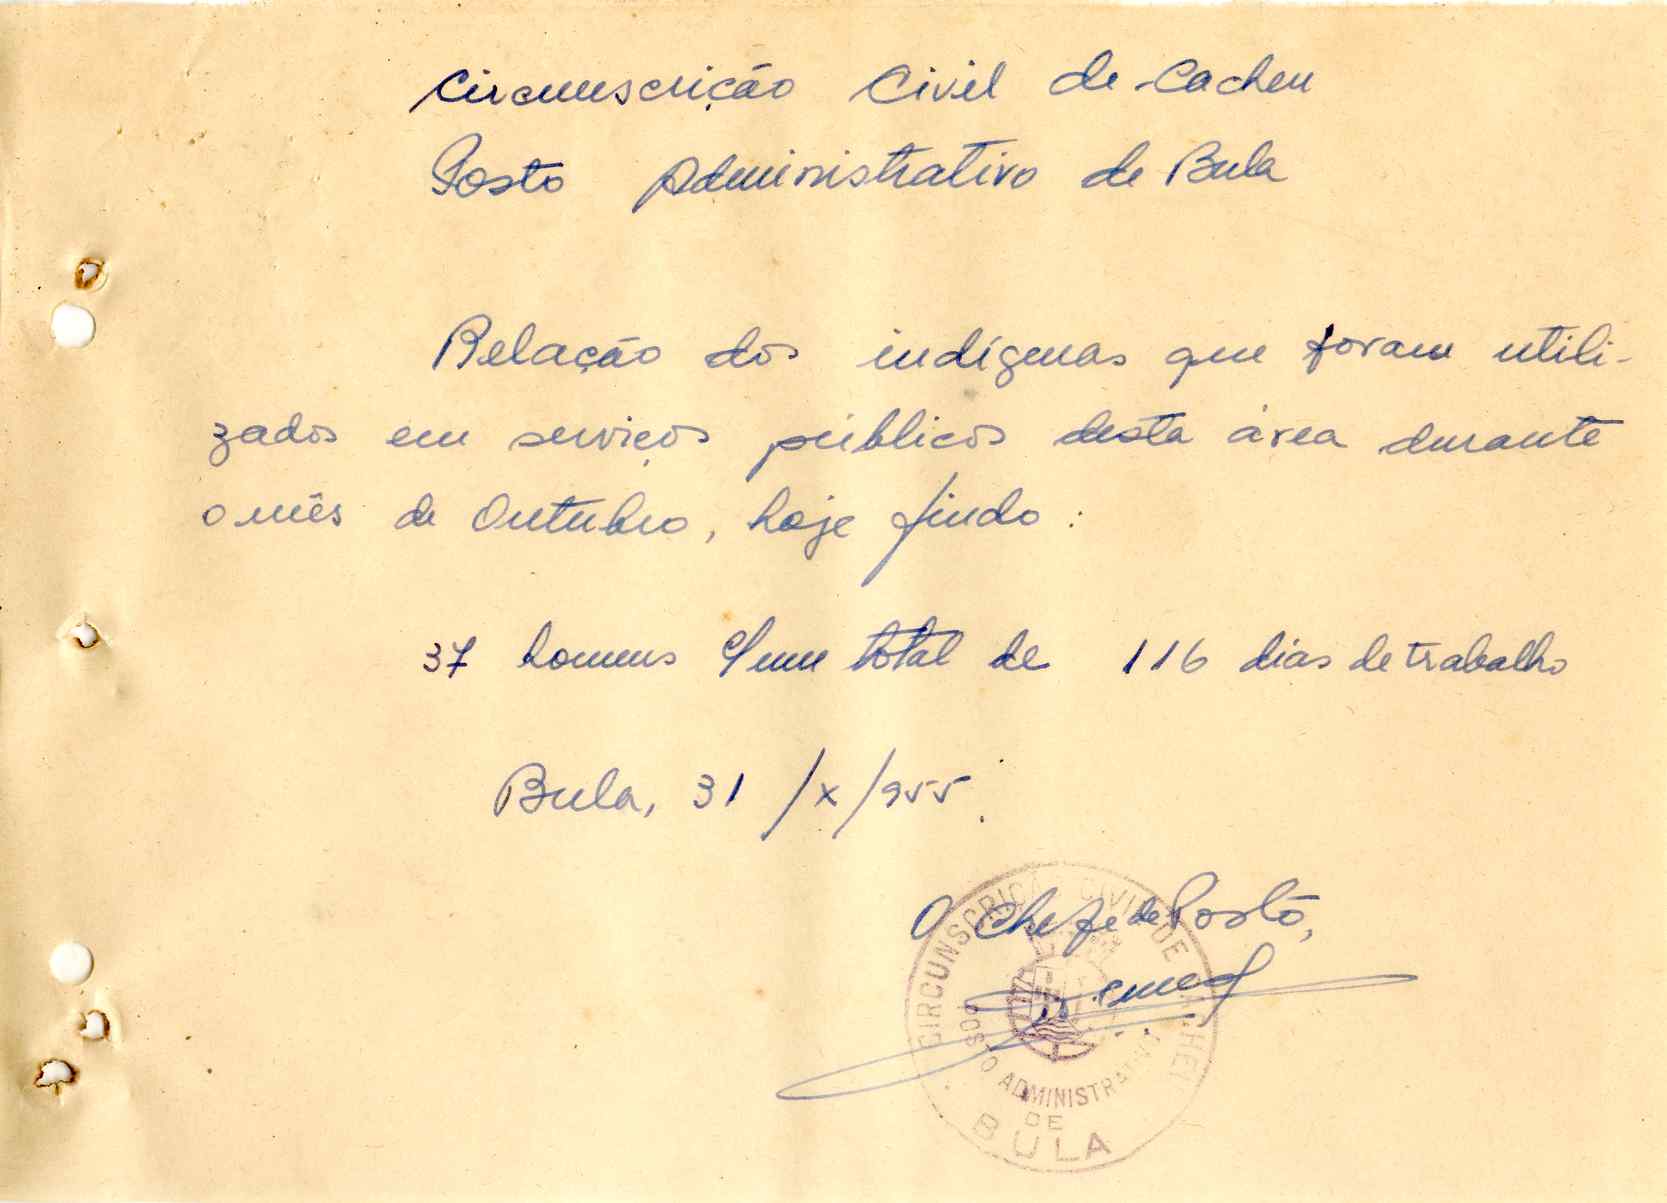 Circunscrição Civil de Cacheu
Posto Administrativo de Bula
Relação dos indígenas que foram utili-
zados em serviços públicos desta área durante
o mês de Outubro, hoje findo:
37 homens c/ um total de 116 dias de trabalho
Bula, 31/X/955.
O Chefe de Posto,
CIRCUNSCRIÇÃO CIVIL DE CACHEU
POSTO ADMINISTRATIVO
DE
BULA